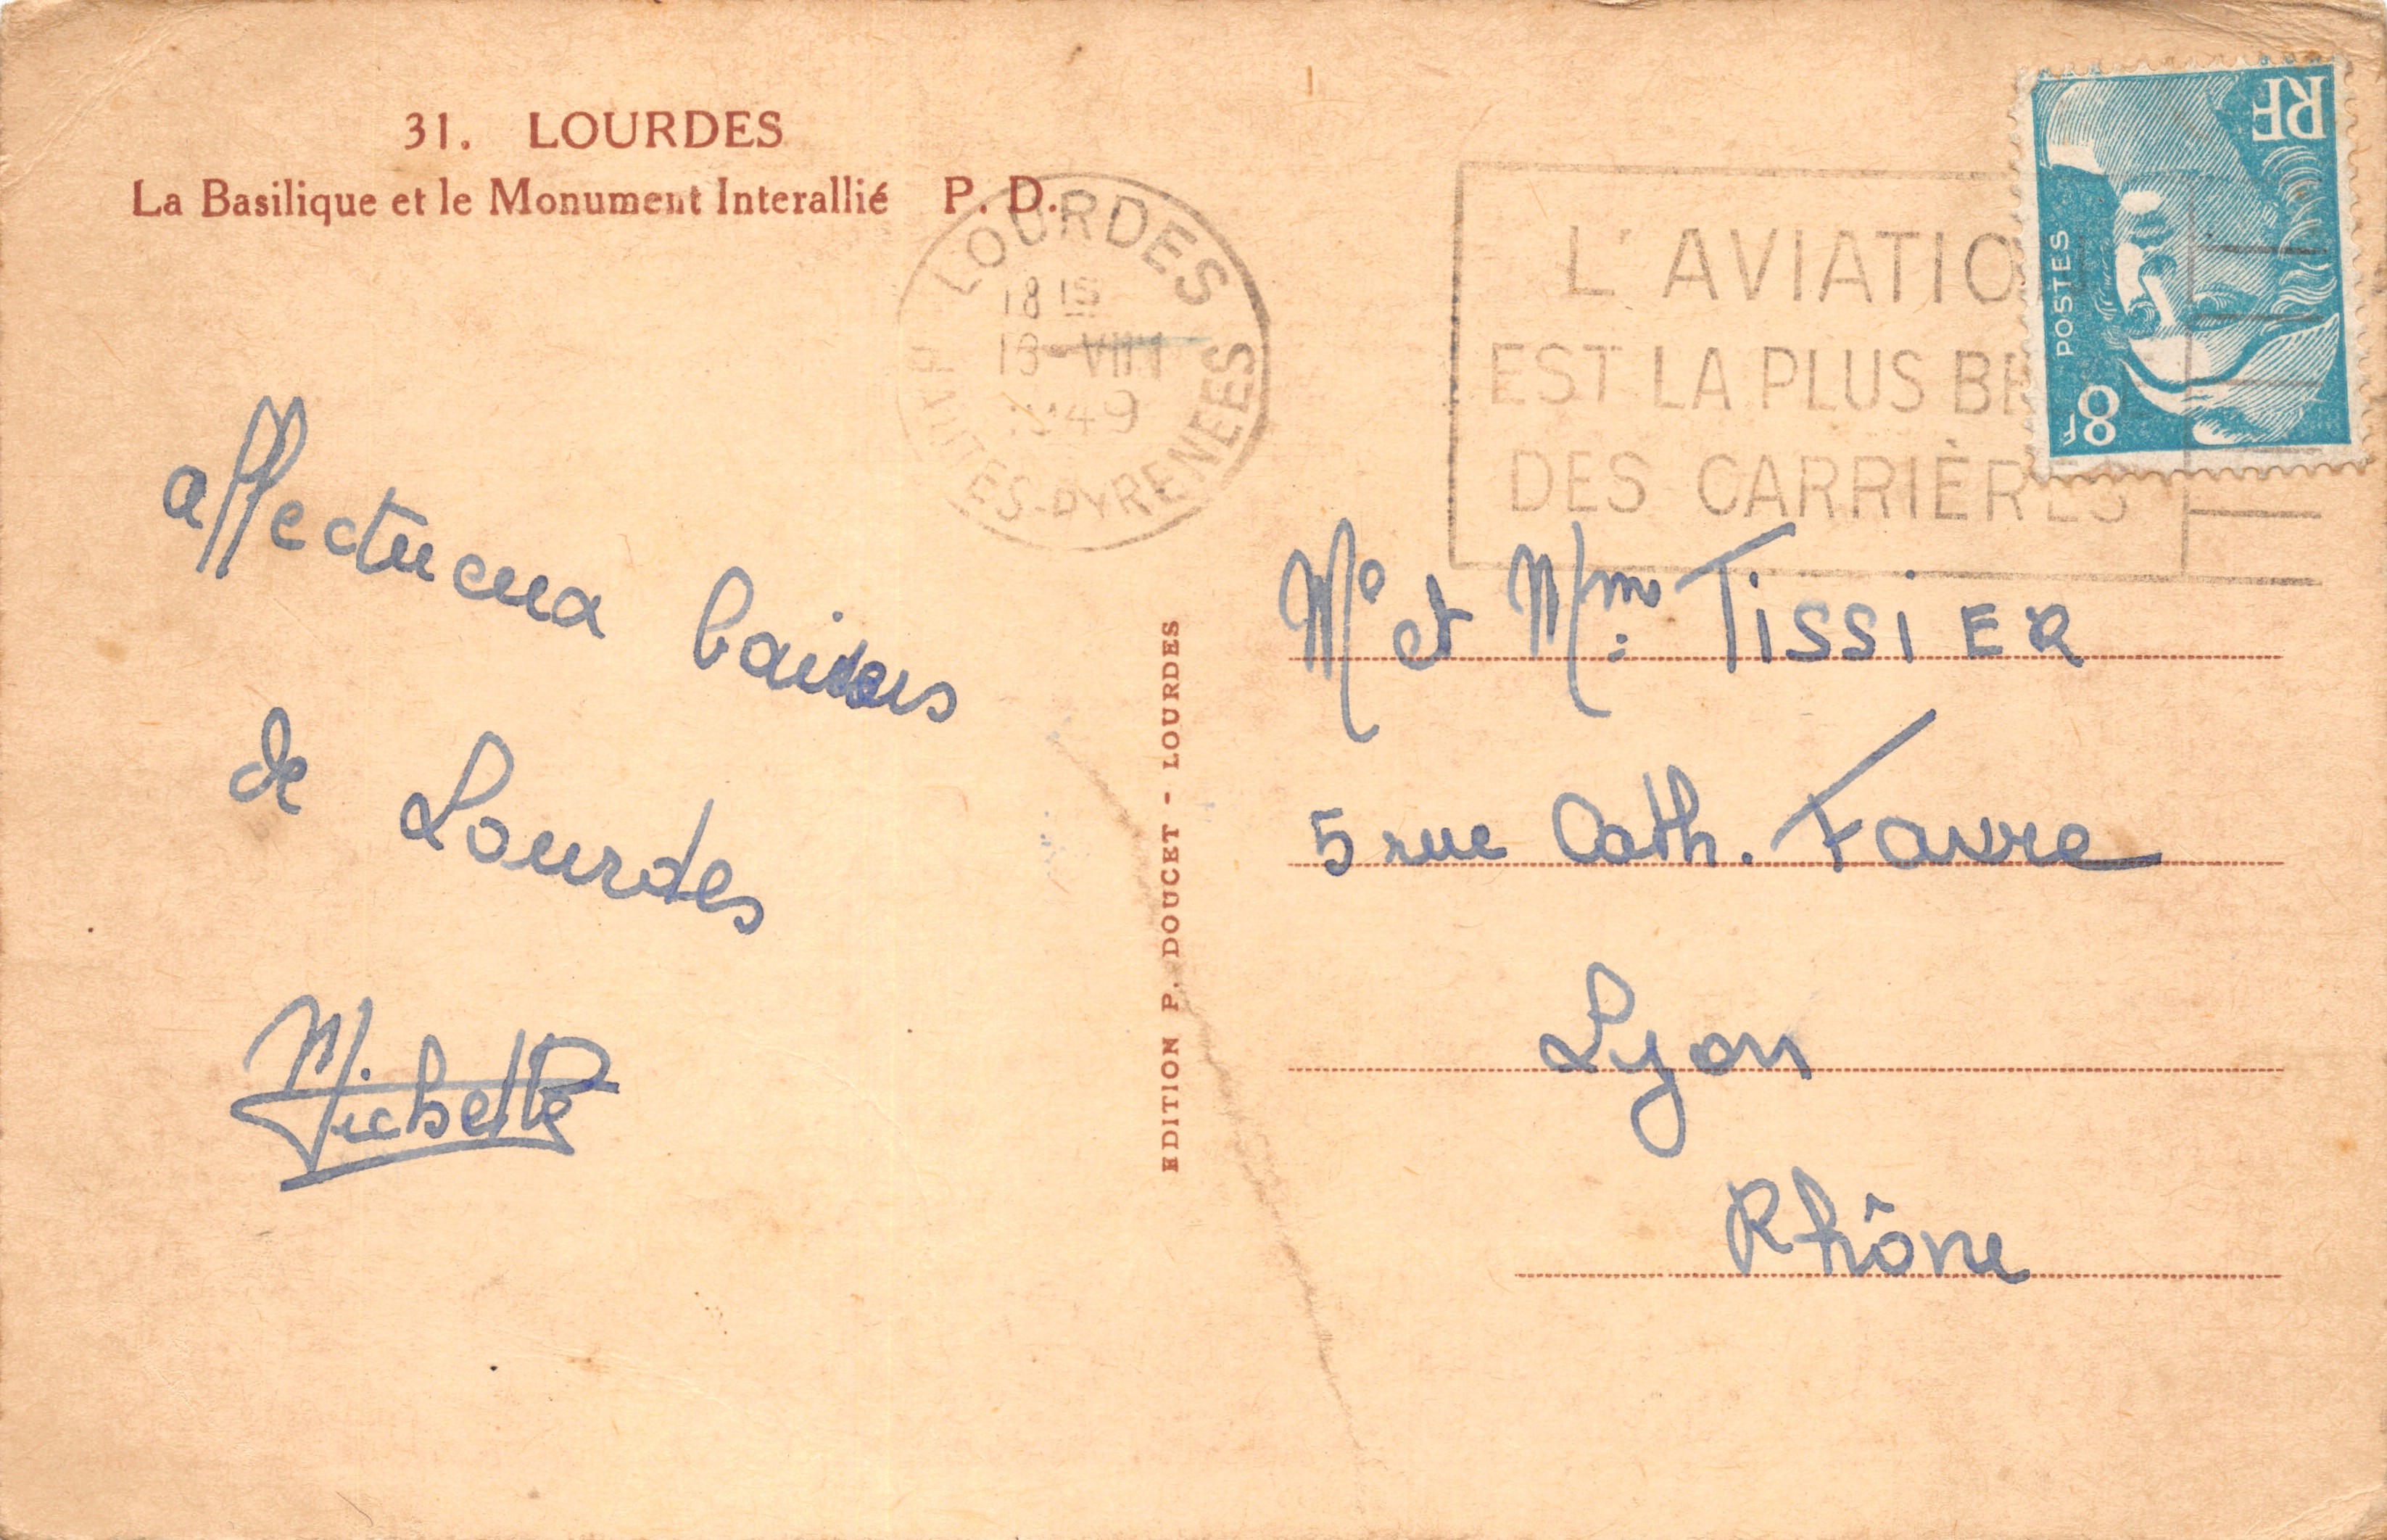 31. LOURDES
La Basilique et le Monument Interallié P. D.
LOURDES
18 15
1949
HAUTES-PYRENEES
L'AVIATION
EST LA PLUS BE
DES CARRIÈRES
RF
POSTES
8F
affectueux baisers
de Lourdes
Michelle
EDITION P. DOUCET - LOURDES
Mr et Mme TISSIER
5 rue Cath. Favre
Lyon
Rhône